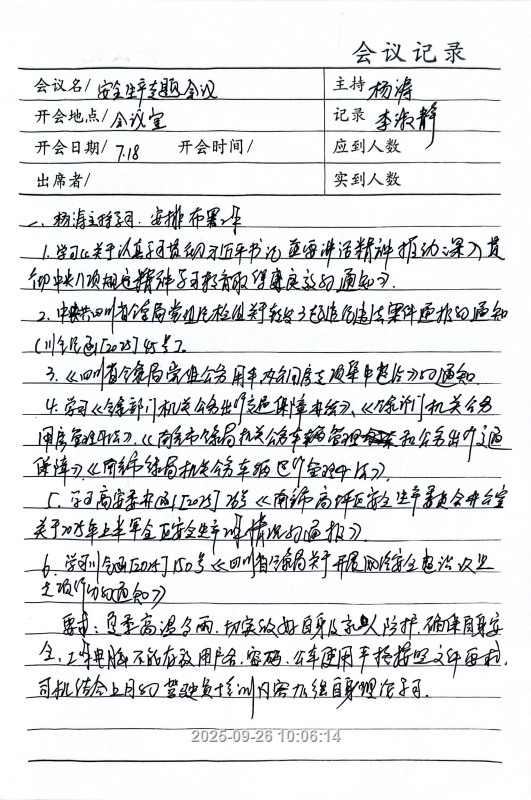 会议记录
会议名/安全生产专题会议
主持 杨涛
开会地点/会议室
记录 李淑静
开会日期/7.18 开会时间/
应到人数
出席者/
实到人数
一、杨涛主持学习、安排布署工作
1.学习《关于认真学习贯彻习近平书记重要讲话精神推动深入贯
彻中央八项规定精神学习教育取得良好的通知》.
2.中共四川省局党组关于转发3起违纪违法案件通报的通知
[2025]45号》.
3.《四川省局党组公务用车办公用房专项集中整治》的通知
4.学习《部门机关公务出行交通保障办法》、《部门机关公务
用房管理办法》、《南充市局机关公务车辆管理和公务出行交通
保障》《南充市局机关公务车辆运行管理办法》.
5.学习高安委办函[2025]26号《南充市高坪区安全生产委员会办公室
关于2025年上半年全区安全生产工作情况的通报》.
6.学习川函[2024]150号《四川省局关于开展网络安全整治
专项行动的通知》
要求:夏季高温多雨.切实做好自身及家人防护.确保自身安
全.工作电脑不能存放用户名、密码.公车使用严格按照文件要求.
司机结合上月的驾驶员培训内容加强自身理论学习.
2025-09-26 10:06:14